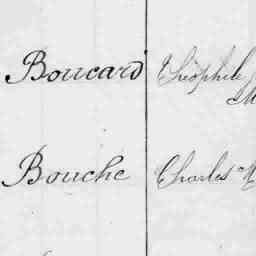 Boucard Théophile
M
Bouche Charles M